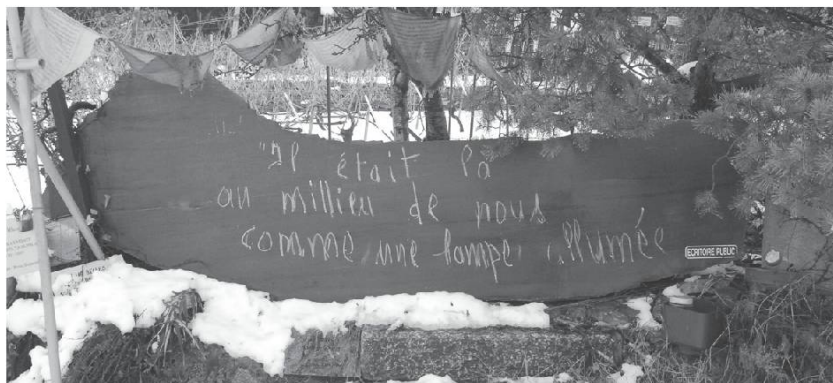 "Il était là
au millieu de nous
comme une lampe allumée
ECRITOIRE PUBLIC